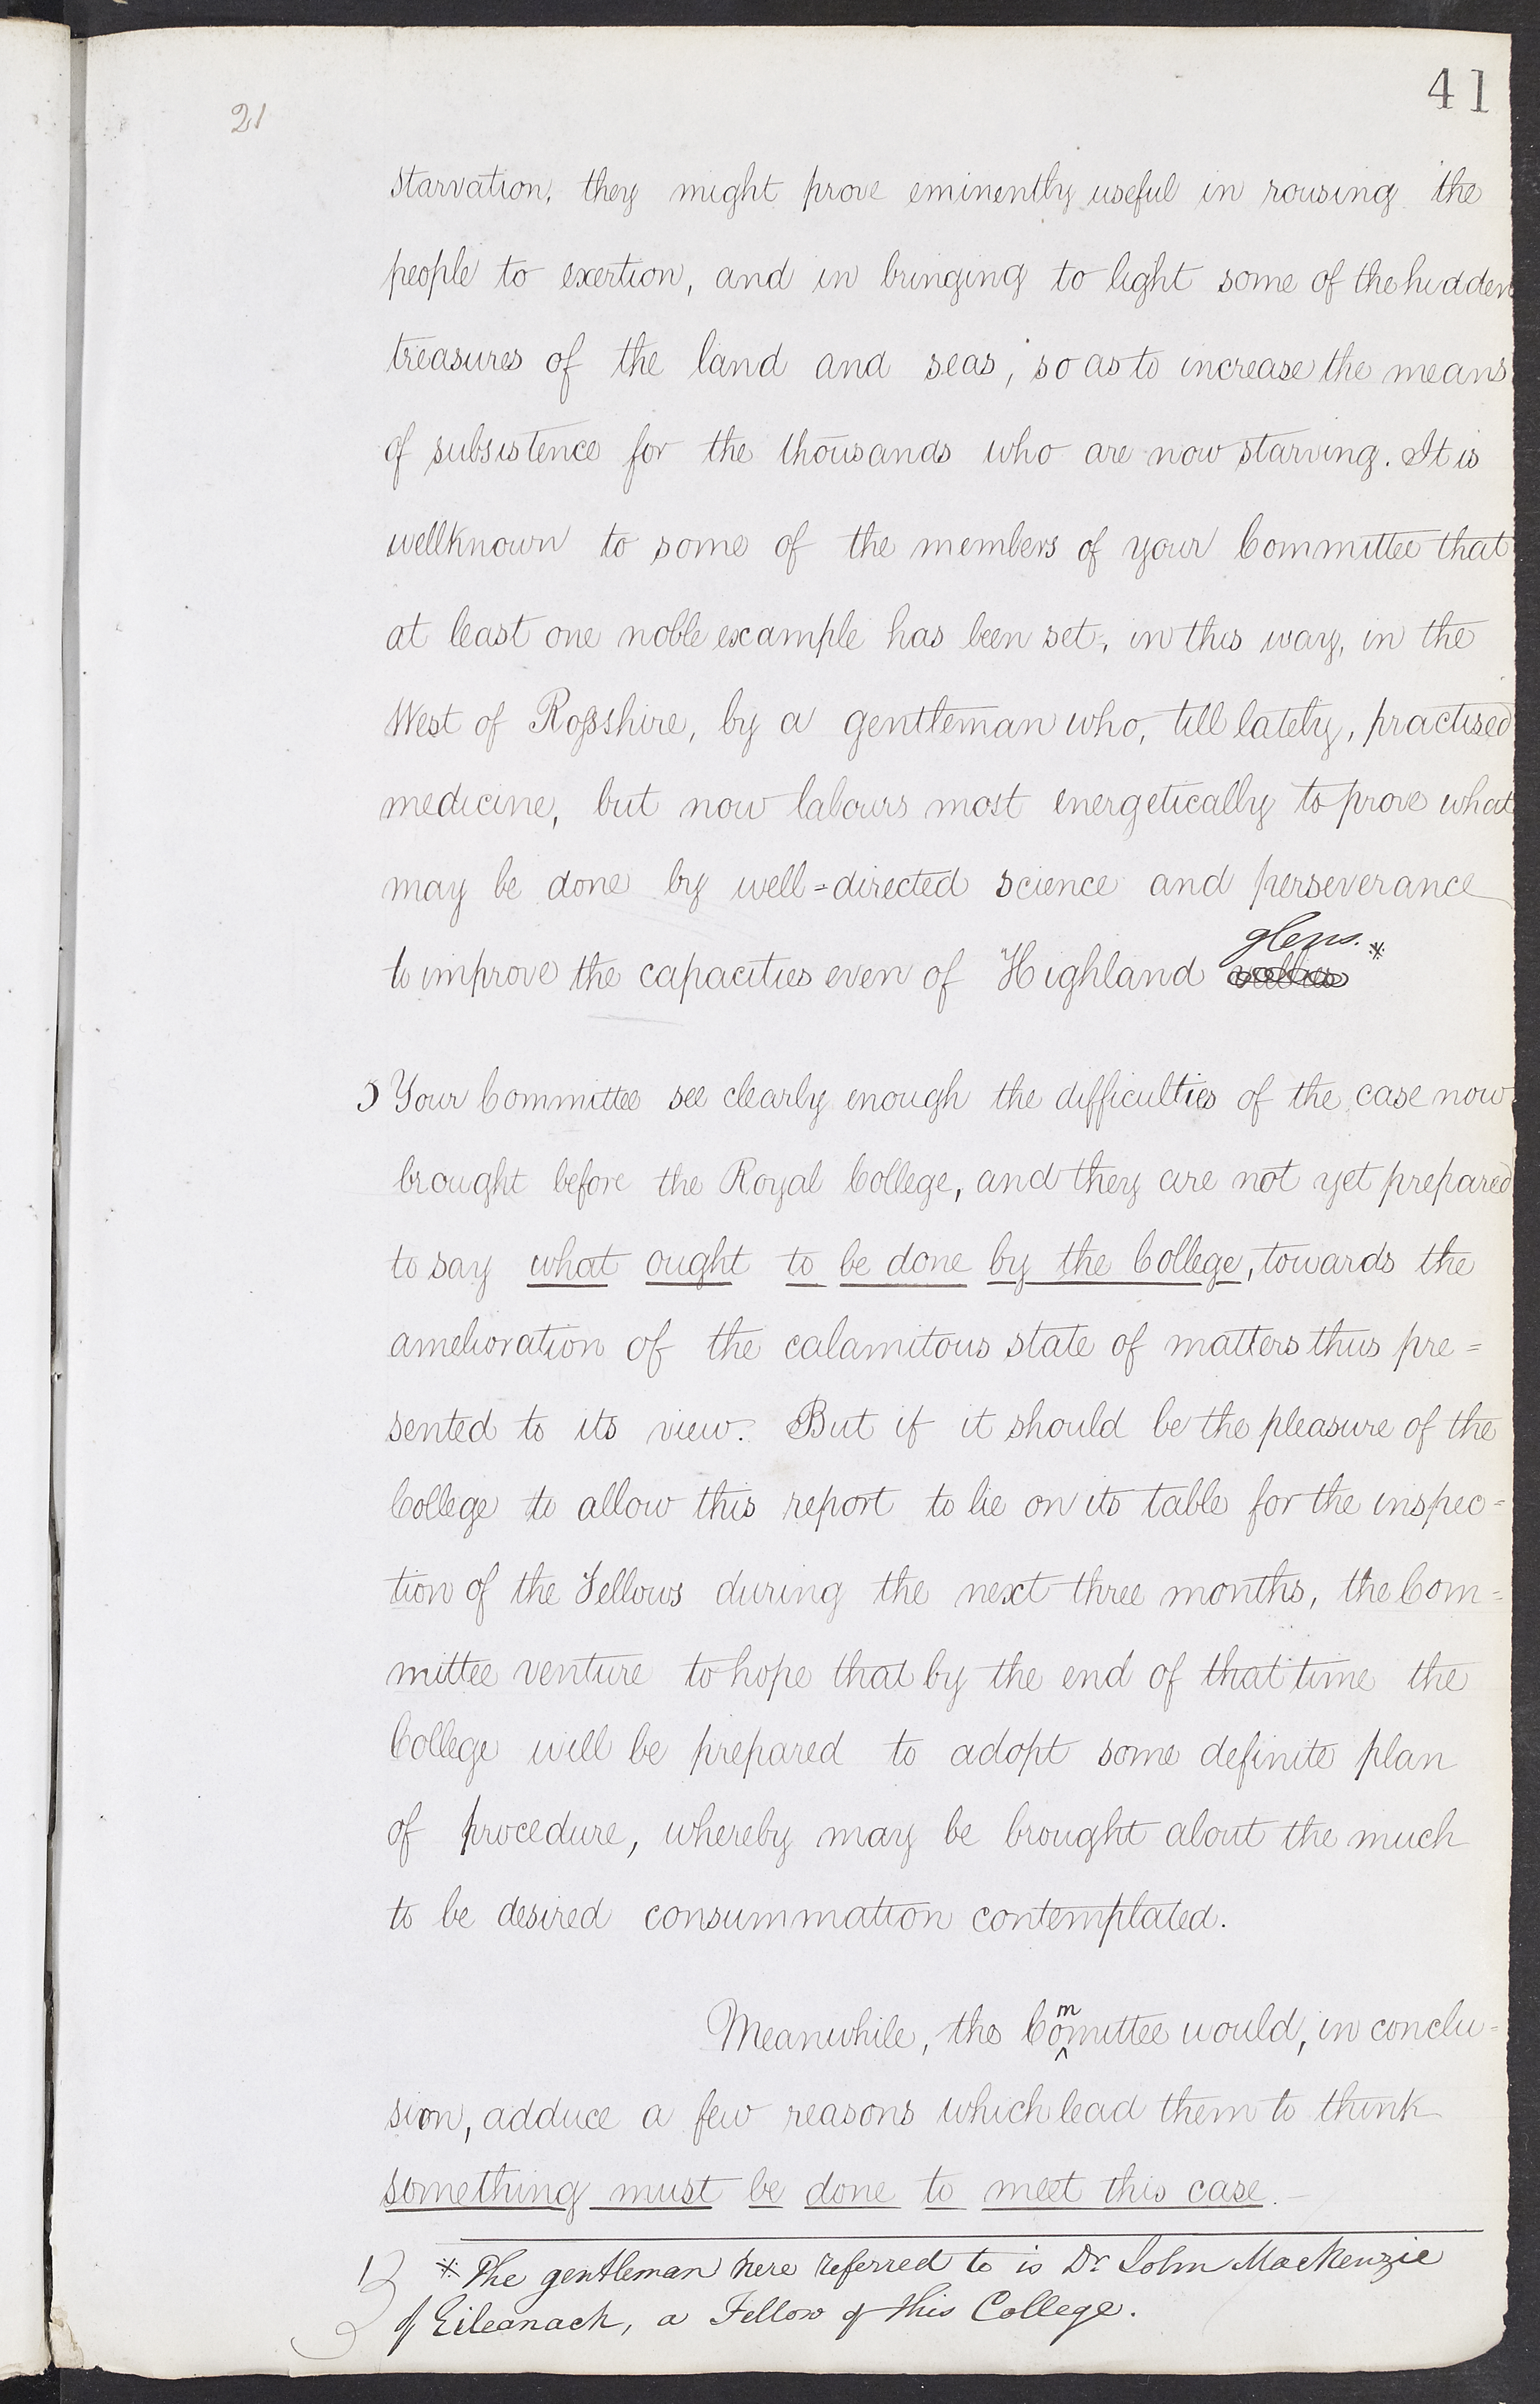 41
21
starvation, they might prove eminently useful in rousing the
people to exertion, and in bringing to light some of the hidden
treasures of the land and seas, so as to increase the means
of subsistence for the thousands who are now starving. It is
wellknown to some of the members of your Committee that
at least one noble example has been set, in this way, in the
West of Rossshire, by a gentleman who, till lately, practised
medicine, but now labours most energetically to prove what
may be done by well=directed science and perseverance
glens.*
to improve the capacities even of Highland
Your Committee see clearly enough the difficulties of the case now
brought before the Royal College, and they are not yet prepared
to say what ought to be done by the College, towards the
amelioration of the calamitous state of matters thus pre=
sented to its view. But if it should be the pleasure of the
College to allow this report to lie on its table for the inspec=
tion of the Fellows during the next three months, the Com=
mittee venture to hope that by the end of that time the
College will be prepared to adopt some definite plan
of procedure, whereby may be brought about the much
to be desired consummation contemplated.
m
Meanwhile, the Comittee would, in conclu=
sion, adduce a few reasons which lead them to think
something must be done to meet this case.—
* The gentleman here referred to is Dr John MacKenzie
of Eileanach, a Fellow of this College.